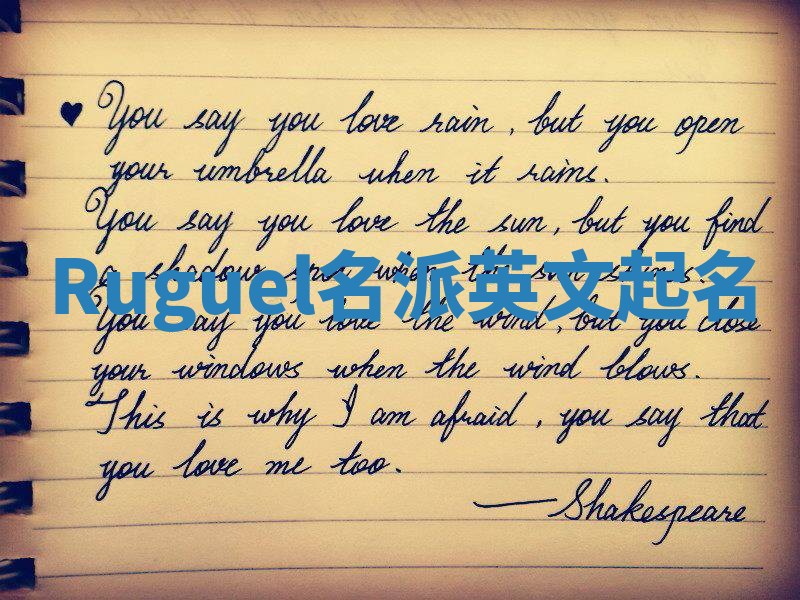 ♥ You say you love rain, but you open
your umbrella when it rains.
You say you love the sun, but you find
a shadow spot when the sun shines.
Ruguel名派英文起名
You say you love the wind, but you close
your windows when the wind blows.
This is why I am afraid, you say that
you love me too.
—Shakespeare